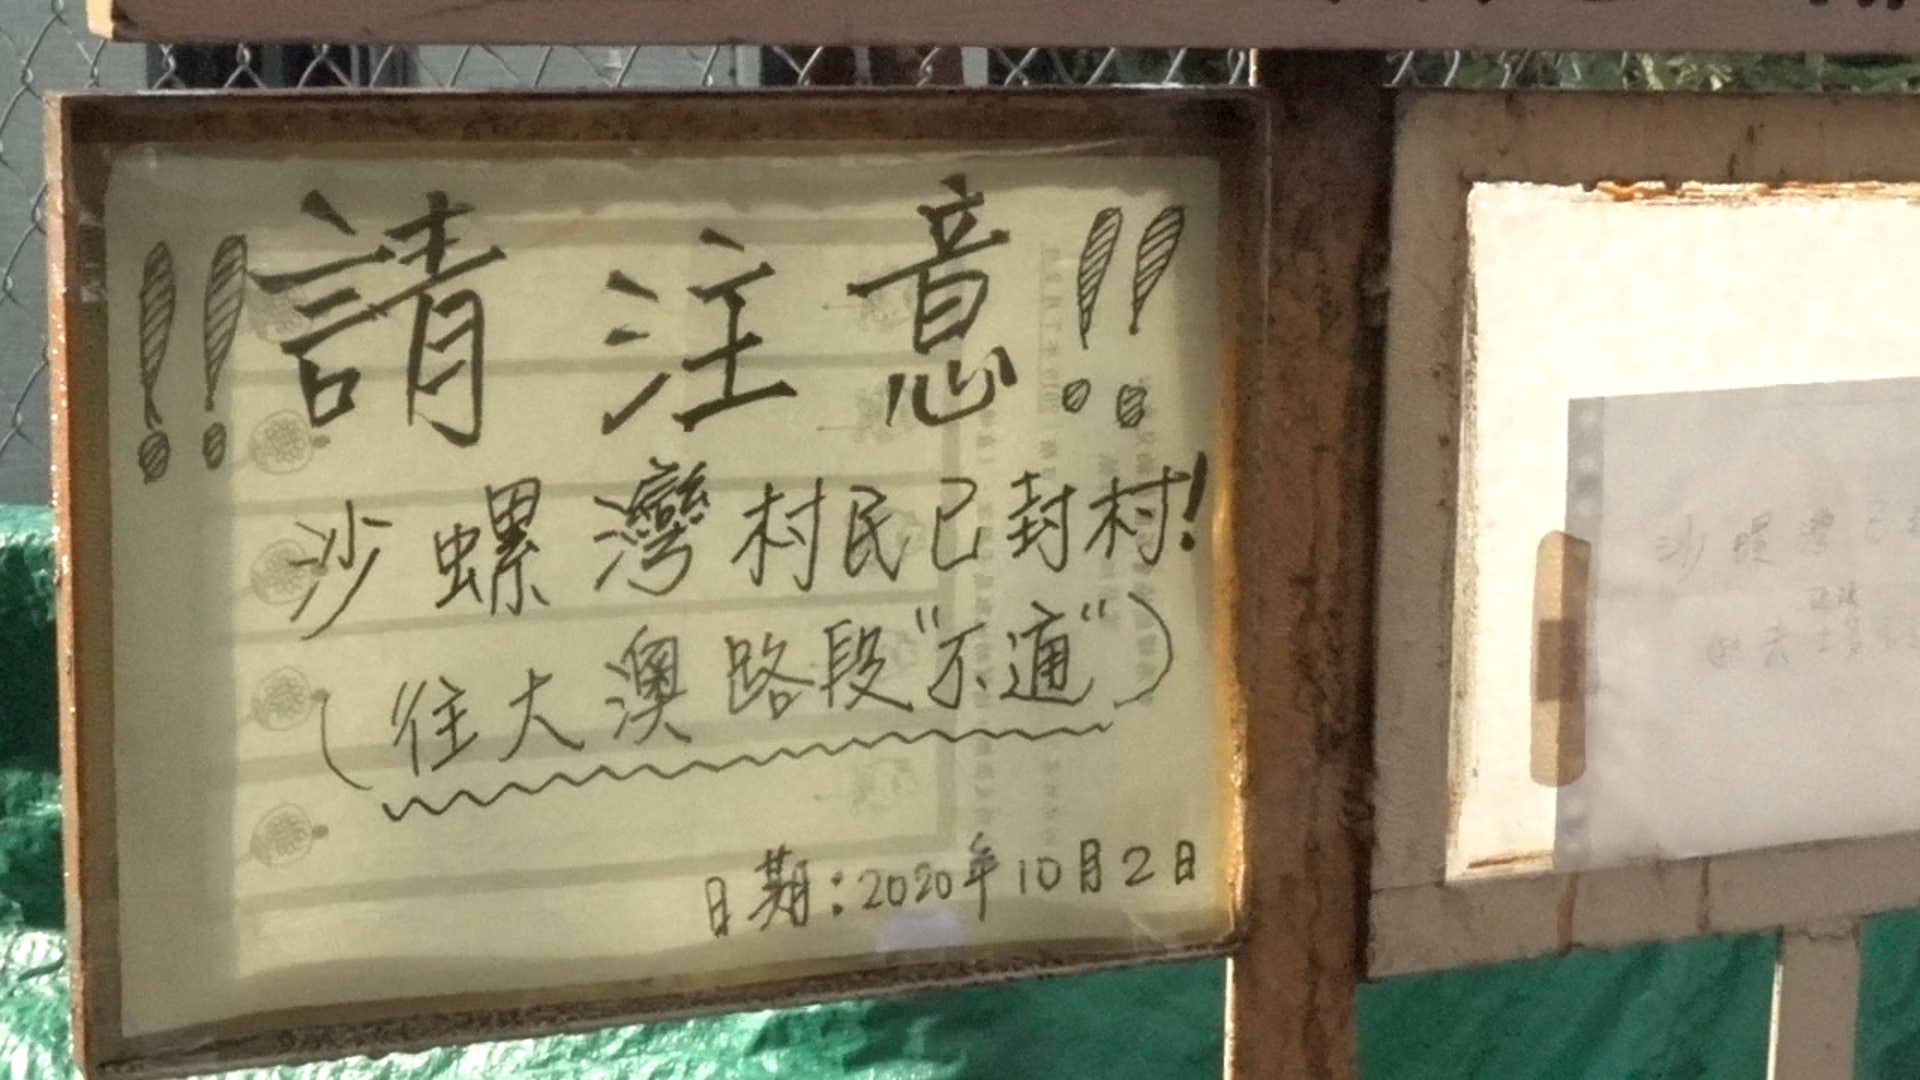 !!請注意!!
沙螺灣村民已封村!
(往大澳路段"不通")
日期:2020年10月2日
沙螺灣已